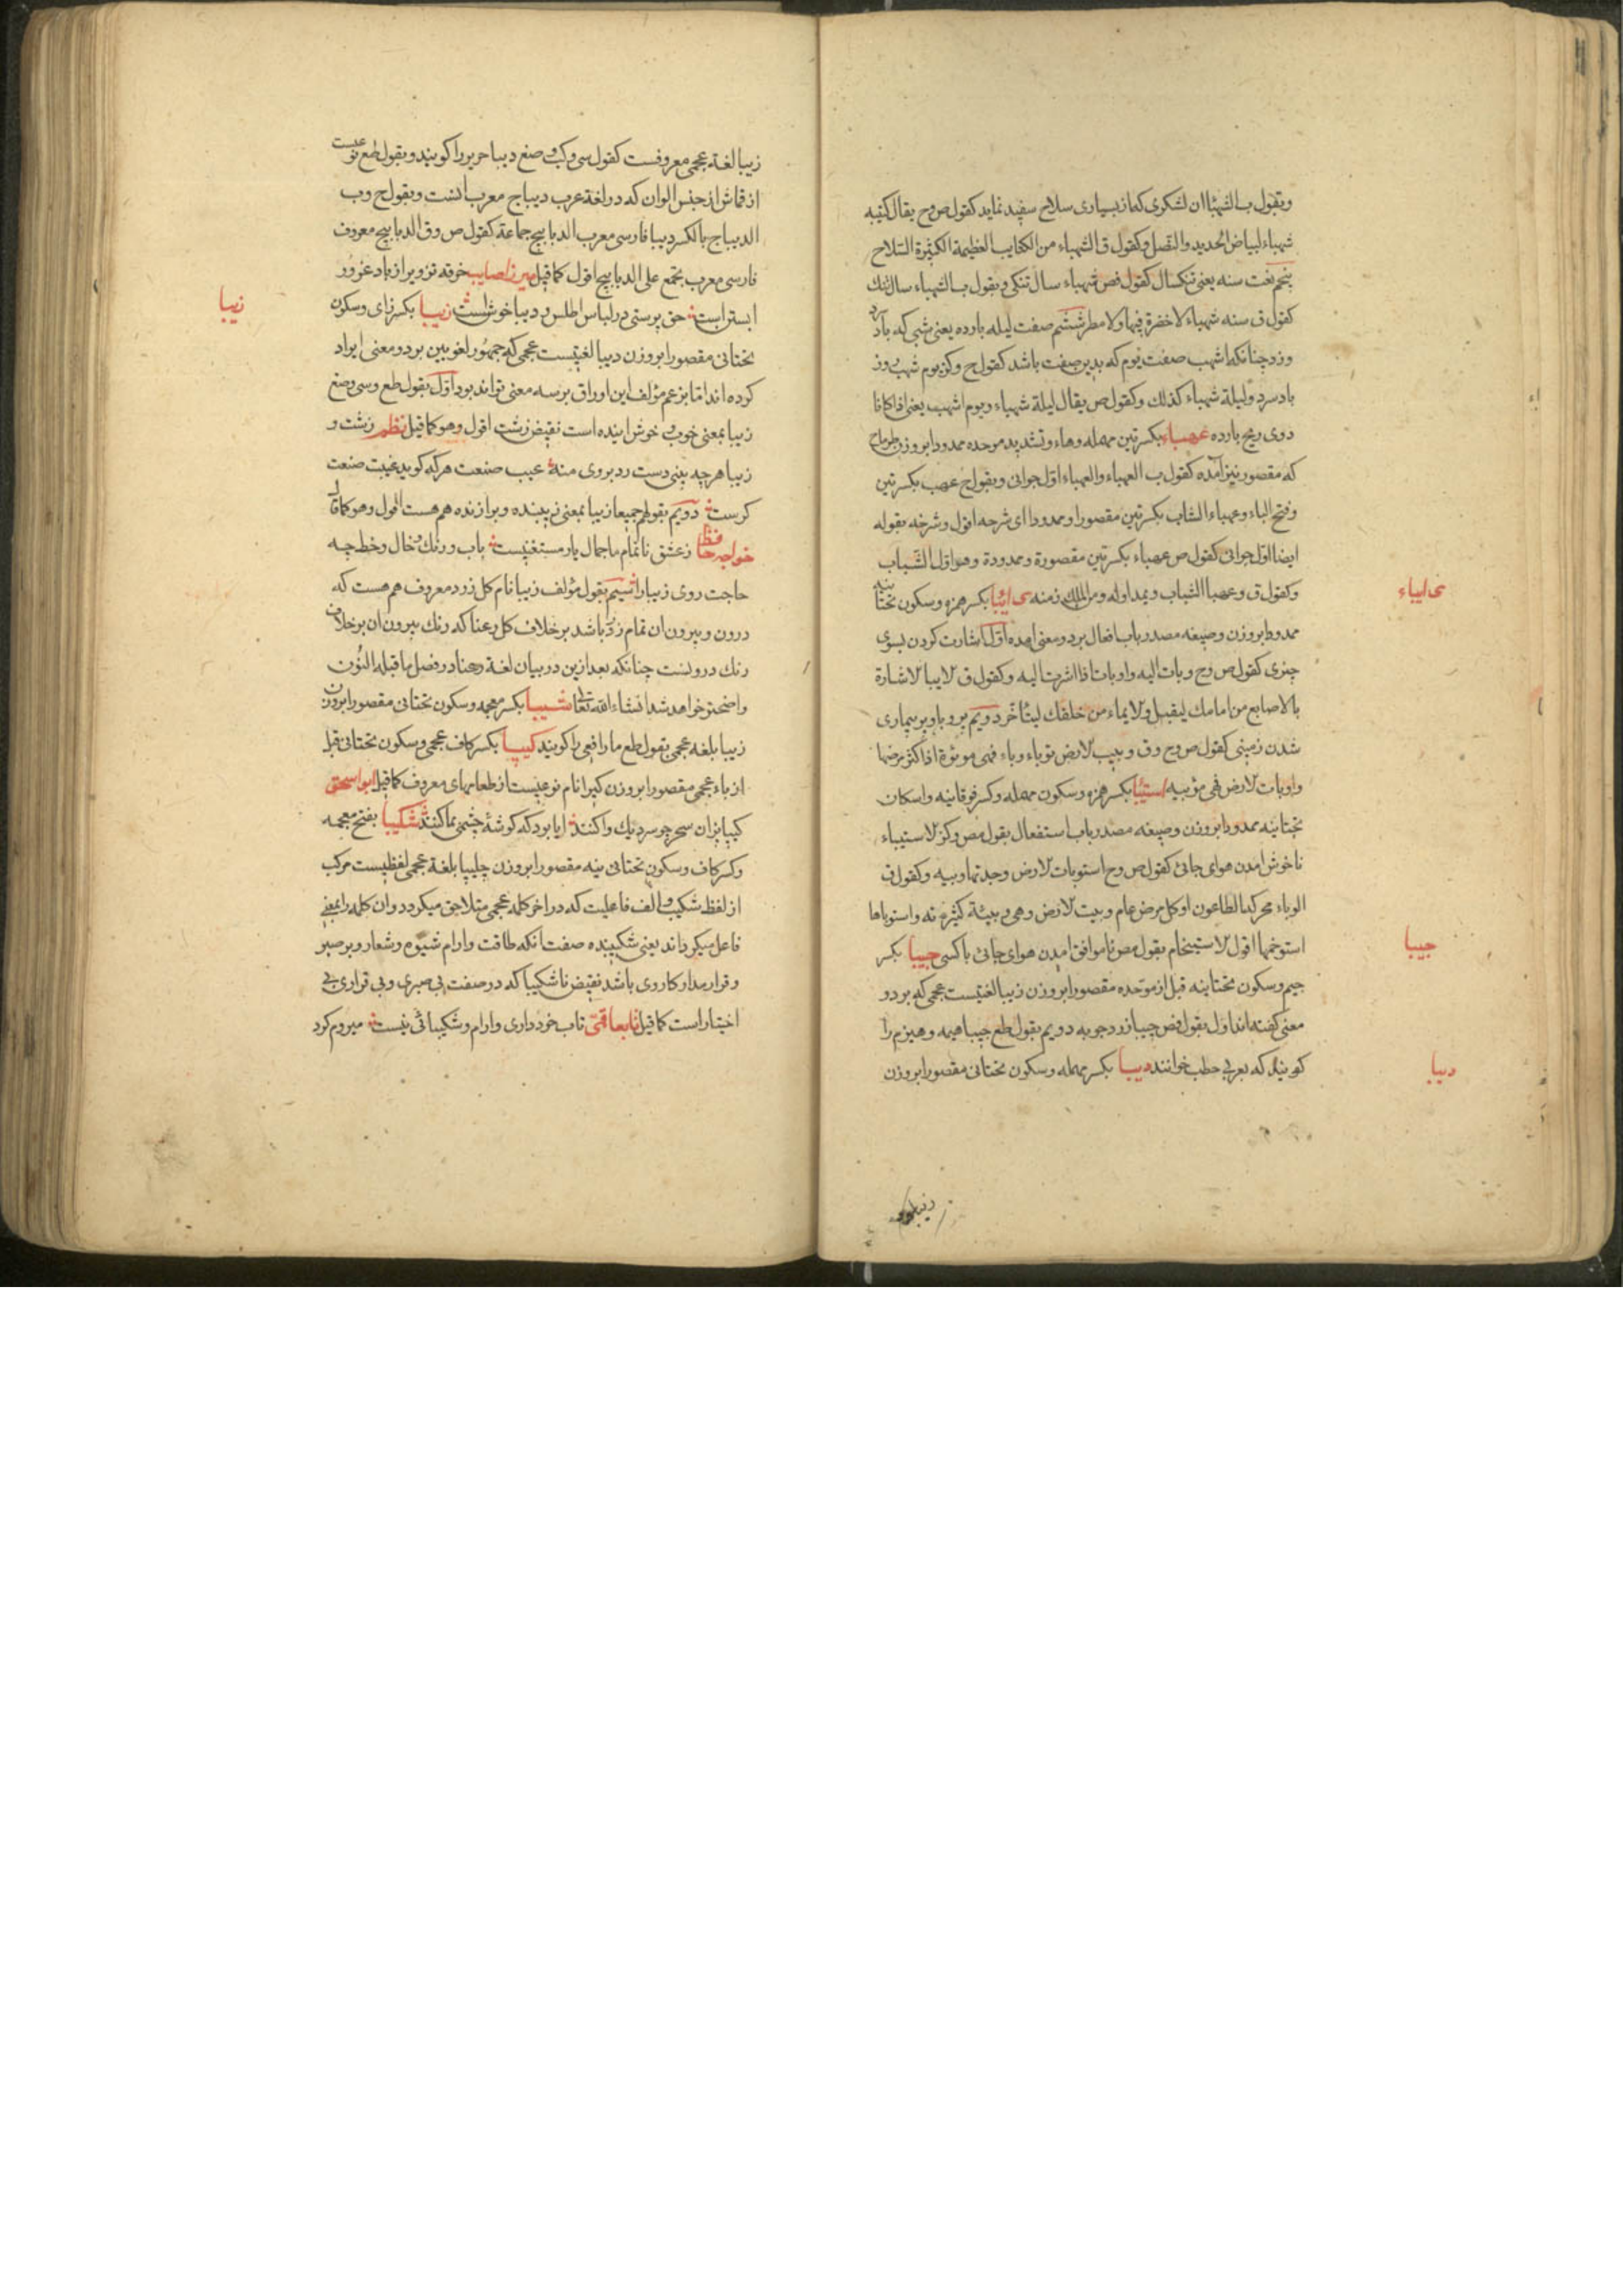 وبقول ب الشهباان لشکری که از بسیاری سلاح سفید نماید کقول ص وح یقال کتیبه
شهباء لبیاض الحدید والنصل وکقول ق الشهباء من الکتایب العظیمة الکثیرة السلاح
پنجم نعت سنه یعنی تنکسال کقول فص شهباء سال تنکی وبقول ب الشهباء سال تنک
کقول ق سنه شهباء لا خضرة فیها ولا مطر ششم صفت لیله بارده یعنی شبی که باد سرد
وزد چنانکه اشهب صفت یوم که بدین صفت باشد کقول ح وکنز یوم شهب روز
باد سرد ولیلة شهباء کذلک وکقول ص یقال لیلة شهباء ویوم اشهب یعنی اذا کانا
ذوی ریح بارده عهباء بکسرتین مهمله وهاء وتشدید موحده ممدودا بروزن
که مقصور نیز آمده کقول ب العهباء والعهباء اول جوانی وبقول ح عهب بکسرتین
وفتح الباء وعهباء الشاب بکسرتین مقصورا وممدودا ای شرخه اقول وشرخه بقوله
ایضا اول جوانی کقول ص عهباء بکسرتین مقصورة وممدودة وهو اول الشباب
وکقول ق وعهبا الشباب ویمد اوله ومن الملک زمنه ی ایبا بکسر همزه وسکون تختانیه
ی ایباء
ممدودا بروزن وصیغه مصدر باب افعال بردو معنی امده اول اشارت کردن بسوی
چیزی کقول ص وح وبات الیه واوبات اذا اشرت الیه وکقول ق الایبا الاشارة
بالاصابع من امامک لیقبل والایماء من خلفک لیتاخر دویم پر وبا وپر بیماری
شدن زمینی کقول ص وح وق وبیب الارض توباء وباء فهی موبوءة اذا کثر مرضها
واوبات الارض فهی موبیه استیبا بکسر همزه وسکون مهمله وکسر فوقانیه واسکان
تختانیه ممدودا بروزن وصیغه مصدر باب استفعال بقول مص وکنز الاستیباء
ناخوش امدن هوای جائی کقول ص وح استوبات الارض وجدتها وبیه وکقول ق
الوباء محرکه الطاعون او کل مرض عام وبیت الارض وهی وبیئة کثیرته واستوباها
استوخمها اقول الاستیخام بقول مص ناموافق امدن هوای جائی با کسی جیبا بکسر
جیبا
جیم وسکون تختانیه قبل از موحده مقصورا بروزن زیبا لغتیست عجمی که بردو
معنی کفته اند اول بقول فص جیبا زرد چوبه دویم بقول طع جیبا هیمه وهیزم را
کویند که بعربی حطب خوانند دیبا بکسر مهمله وسکون تختانی مقصورا بروزن
دیبا
زیبا لغة

زیبا لغة عجمی معروفست کقول سی وکب وصغ دیبا حریر را کویند وبقول طع نوعیست
از قماش از جنس الوان که در لغة عرب دیباج معرب انست وبقول ح وب
الدیباج بالکسر دیبا فارسی معرب الدبابیج جماعة کقول ص وق الدبابیج معروف
فارسی معرب یجمع علی الدبابیج اقول کما قیل میرزا صایب خرقه تزویر از باد غرور
ابستر است حق پرستی در لباس اطلس و دیبا خوش است زیبا بکسر زای وسکون
زیبا
تختانی مقصورا بروزن دیبا لغتیست عجمی که جمهور لغویین بردو معنی ایراد
کرده اند اما بزعم مؤلف این اوراق برسه معنی تواند بود اول بقول طع وسی وصغ
زیبا بمعنی خوب وخوش اینده است نقیض زشت اقول وهو کما قیل نظم زشت و
زیبا هرچه بینی دست رد بروی منه عیب صنعت هرکه کوید غیبت صنعت
کرست دویم بقولهم جمیعا زیبا بمعنی زیبنده وبرازنده هم هست اقول وهو کما قال
خواجه حافظ زعشق ناتمام ما جمال یار مستغنیست باب ورنک وخال وخط چه
حاجت روی زیبا را سیم بقول مؤلف زیبا نام کل زرد معروف هم هست که
درون وبیرون ان تمام زرد باشد برخلاف کل رعنا که رنک بیرون ان برخلاف
رنک درونست چنانکه بعد ازین در بیان لغة رعنا در فصل ما قبله النون
واضحتر خواهد شد انشاء الله تعالی شیبا بکسر معجمه وسکون تختانی مقصورا بروزن
زیبا بلغة عجمی بقول طع مار افعی را کویند کیپا بکسر کاف عجمی وسکون تختانی قبل
از باء عجمی مقصورا بروزن کیرا نام نوعیست از طعامهای معروف کما قیل ابو اسحق
کیپا پزان سحر چو سر دیک وا کنند ایا بود که کوشهٔ چشمی بما کنند شکیبا بفتح معجمه
وکسر کاف وسکون تختانی نیه مقصورا بروزن چلیپا بلغة عجمی لفظیست مرکب
از لفظ شکیب والف فاعلیت که در اخر کلمه عجمی متلاحق میکردد وان کلمه را بمعنی
فاعل میکرداند یعنی شکیبنده صفت انکه طاقت وارام شیوه وشعار وبر صبر
وقرار مدار کار وی باشد نقیض ناشکیبا که در صفت بی صبری وبی قراری بی
اختیار است کما قیل تاب خودداری وارام وشکیبائی نیست میروم کرد